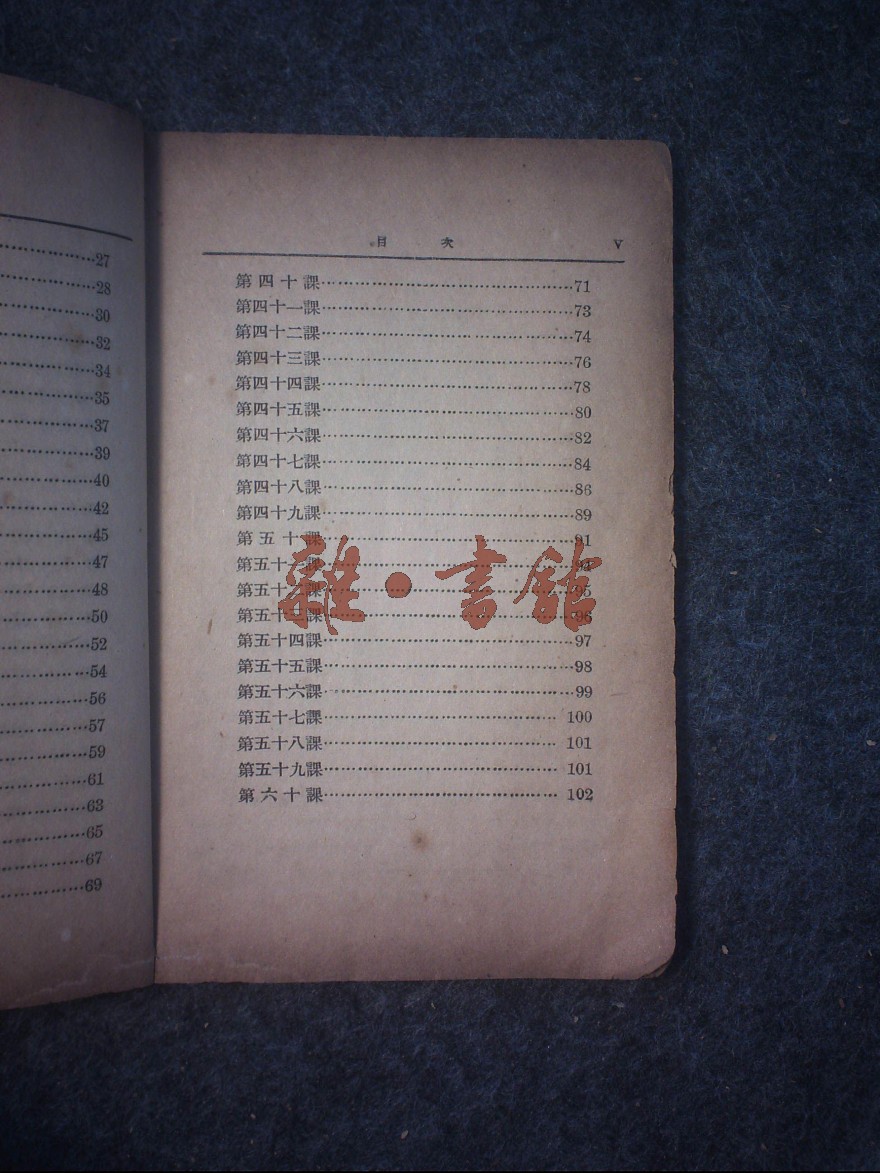 27
28
30
32
34
35
37
39
40
42
45
47
48
50
52
54
56
57
59
61
63
65
67
69
目 次 V
第四十課 71
第四十一課 73
第四十二課 74
第四十三課 76
第四十四課 78
第四十五課 80
第四十六課 82
第四十七課 84
第四十八課 86
第四十九課 89
第五十課 91
第五十一課 94
第五十二課 95
第五十三課 96
第五十四課 97
第五十五課 98
第五十六課 99
第五十七課 100
第五十八課 101
第五十九課 101
第六十課 102
雜·書館